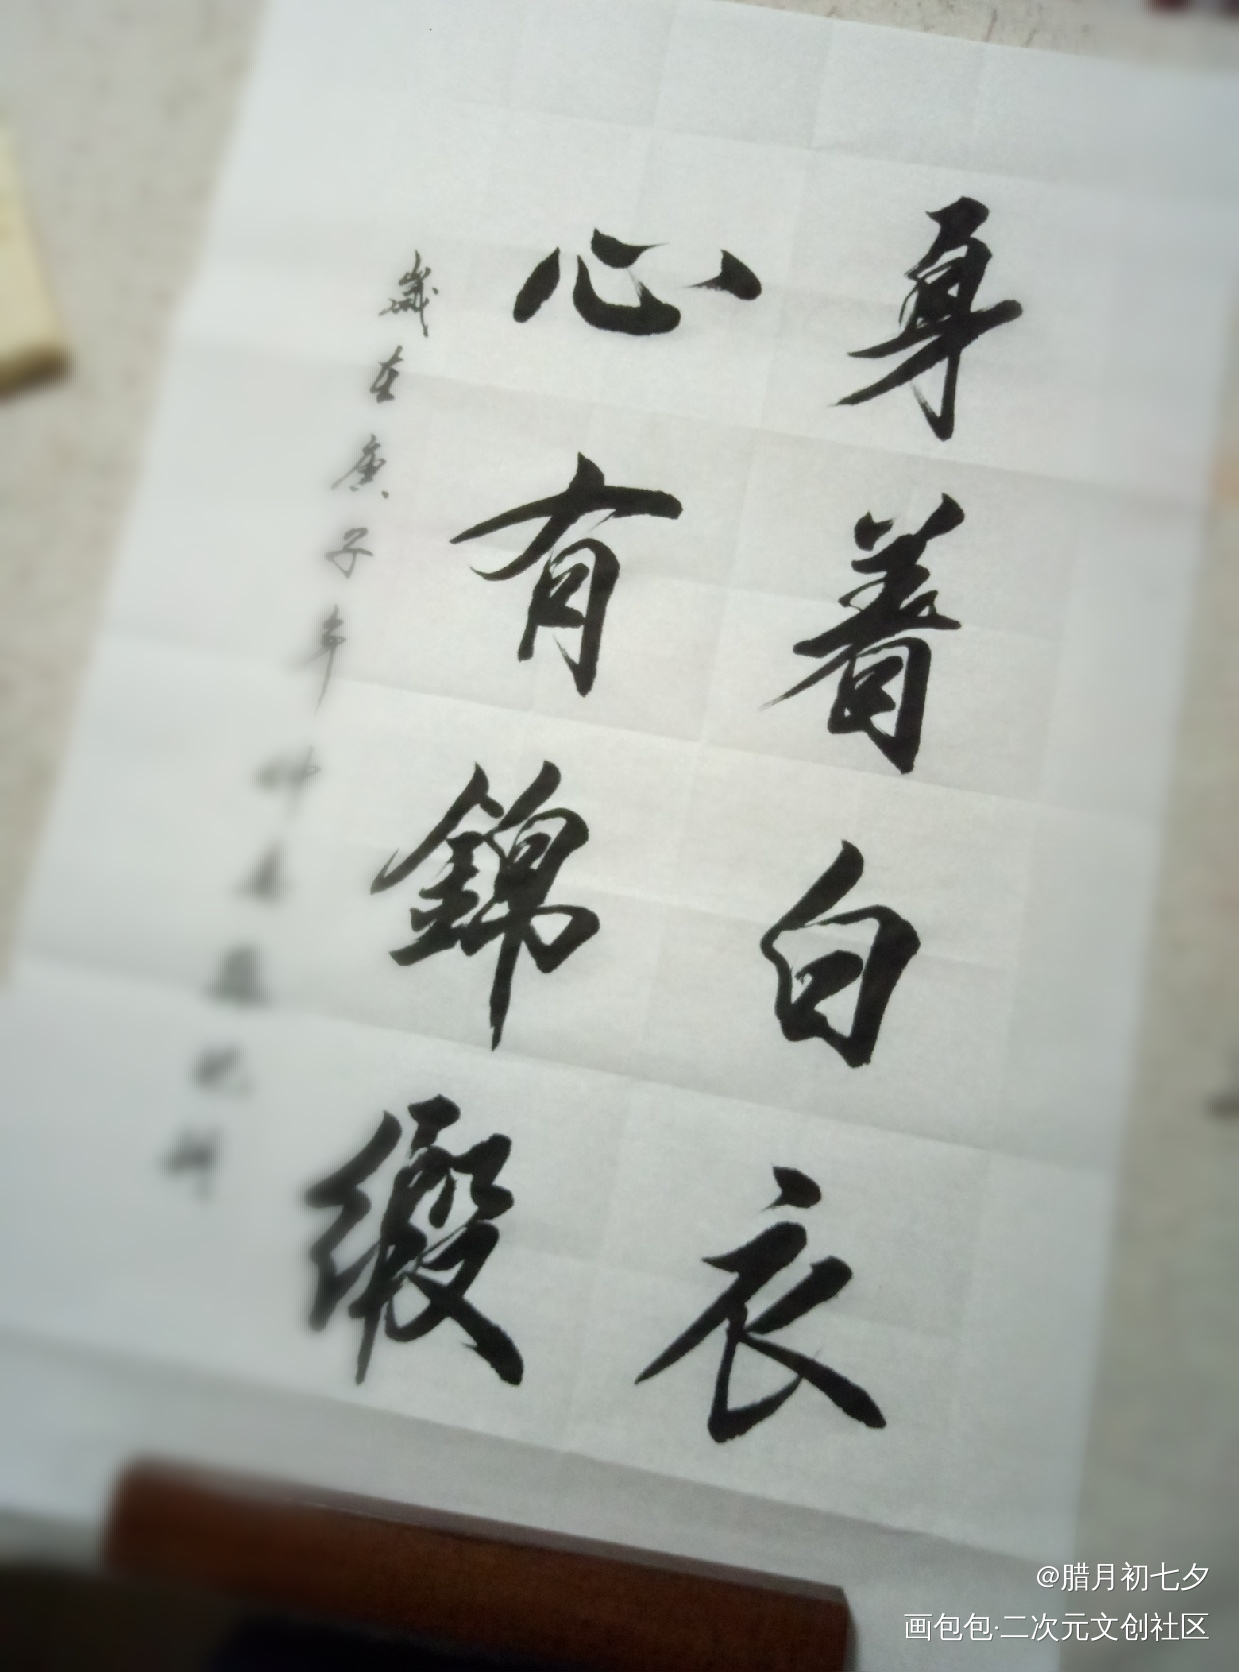 身着白衣
心有錦緞
歲在庚子年仲
@腊月初七夕
画包包·二次元文创社区